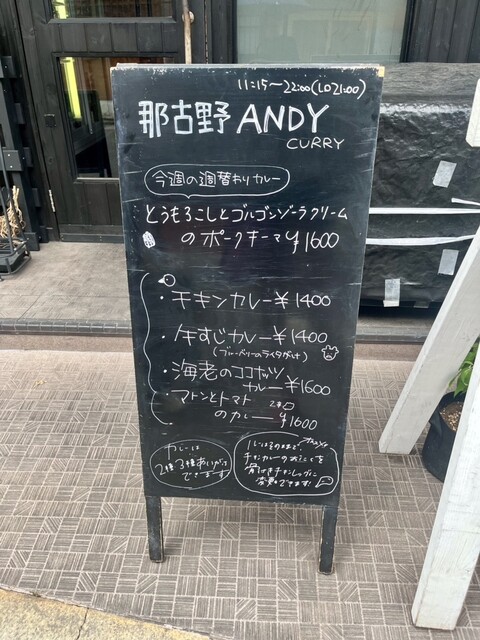 11:15～22:00(LO21:00)
那古野 ANDY
CURRY
今週の週替わりカレー
とうもろこしとゴルゴンゾーラクリーム
のポークキーマ ¥1600
・チキンカレー ¥1400
・牛すじカレー ¥1400
(ブルーベリーのライタ付け)
・海老のココナッツ
カレー ¥1600
・マトンとトマト
のカレー ¥1600
カレーは
2種、3種あいがけ
できまーす
チキンカレーのお肉を
骨付きチキンレッグに
変更できます!